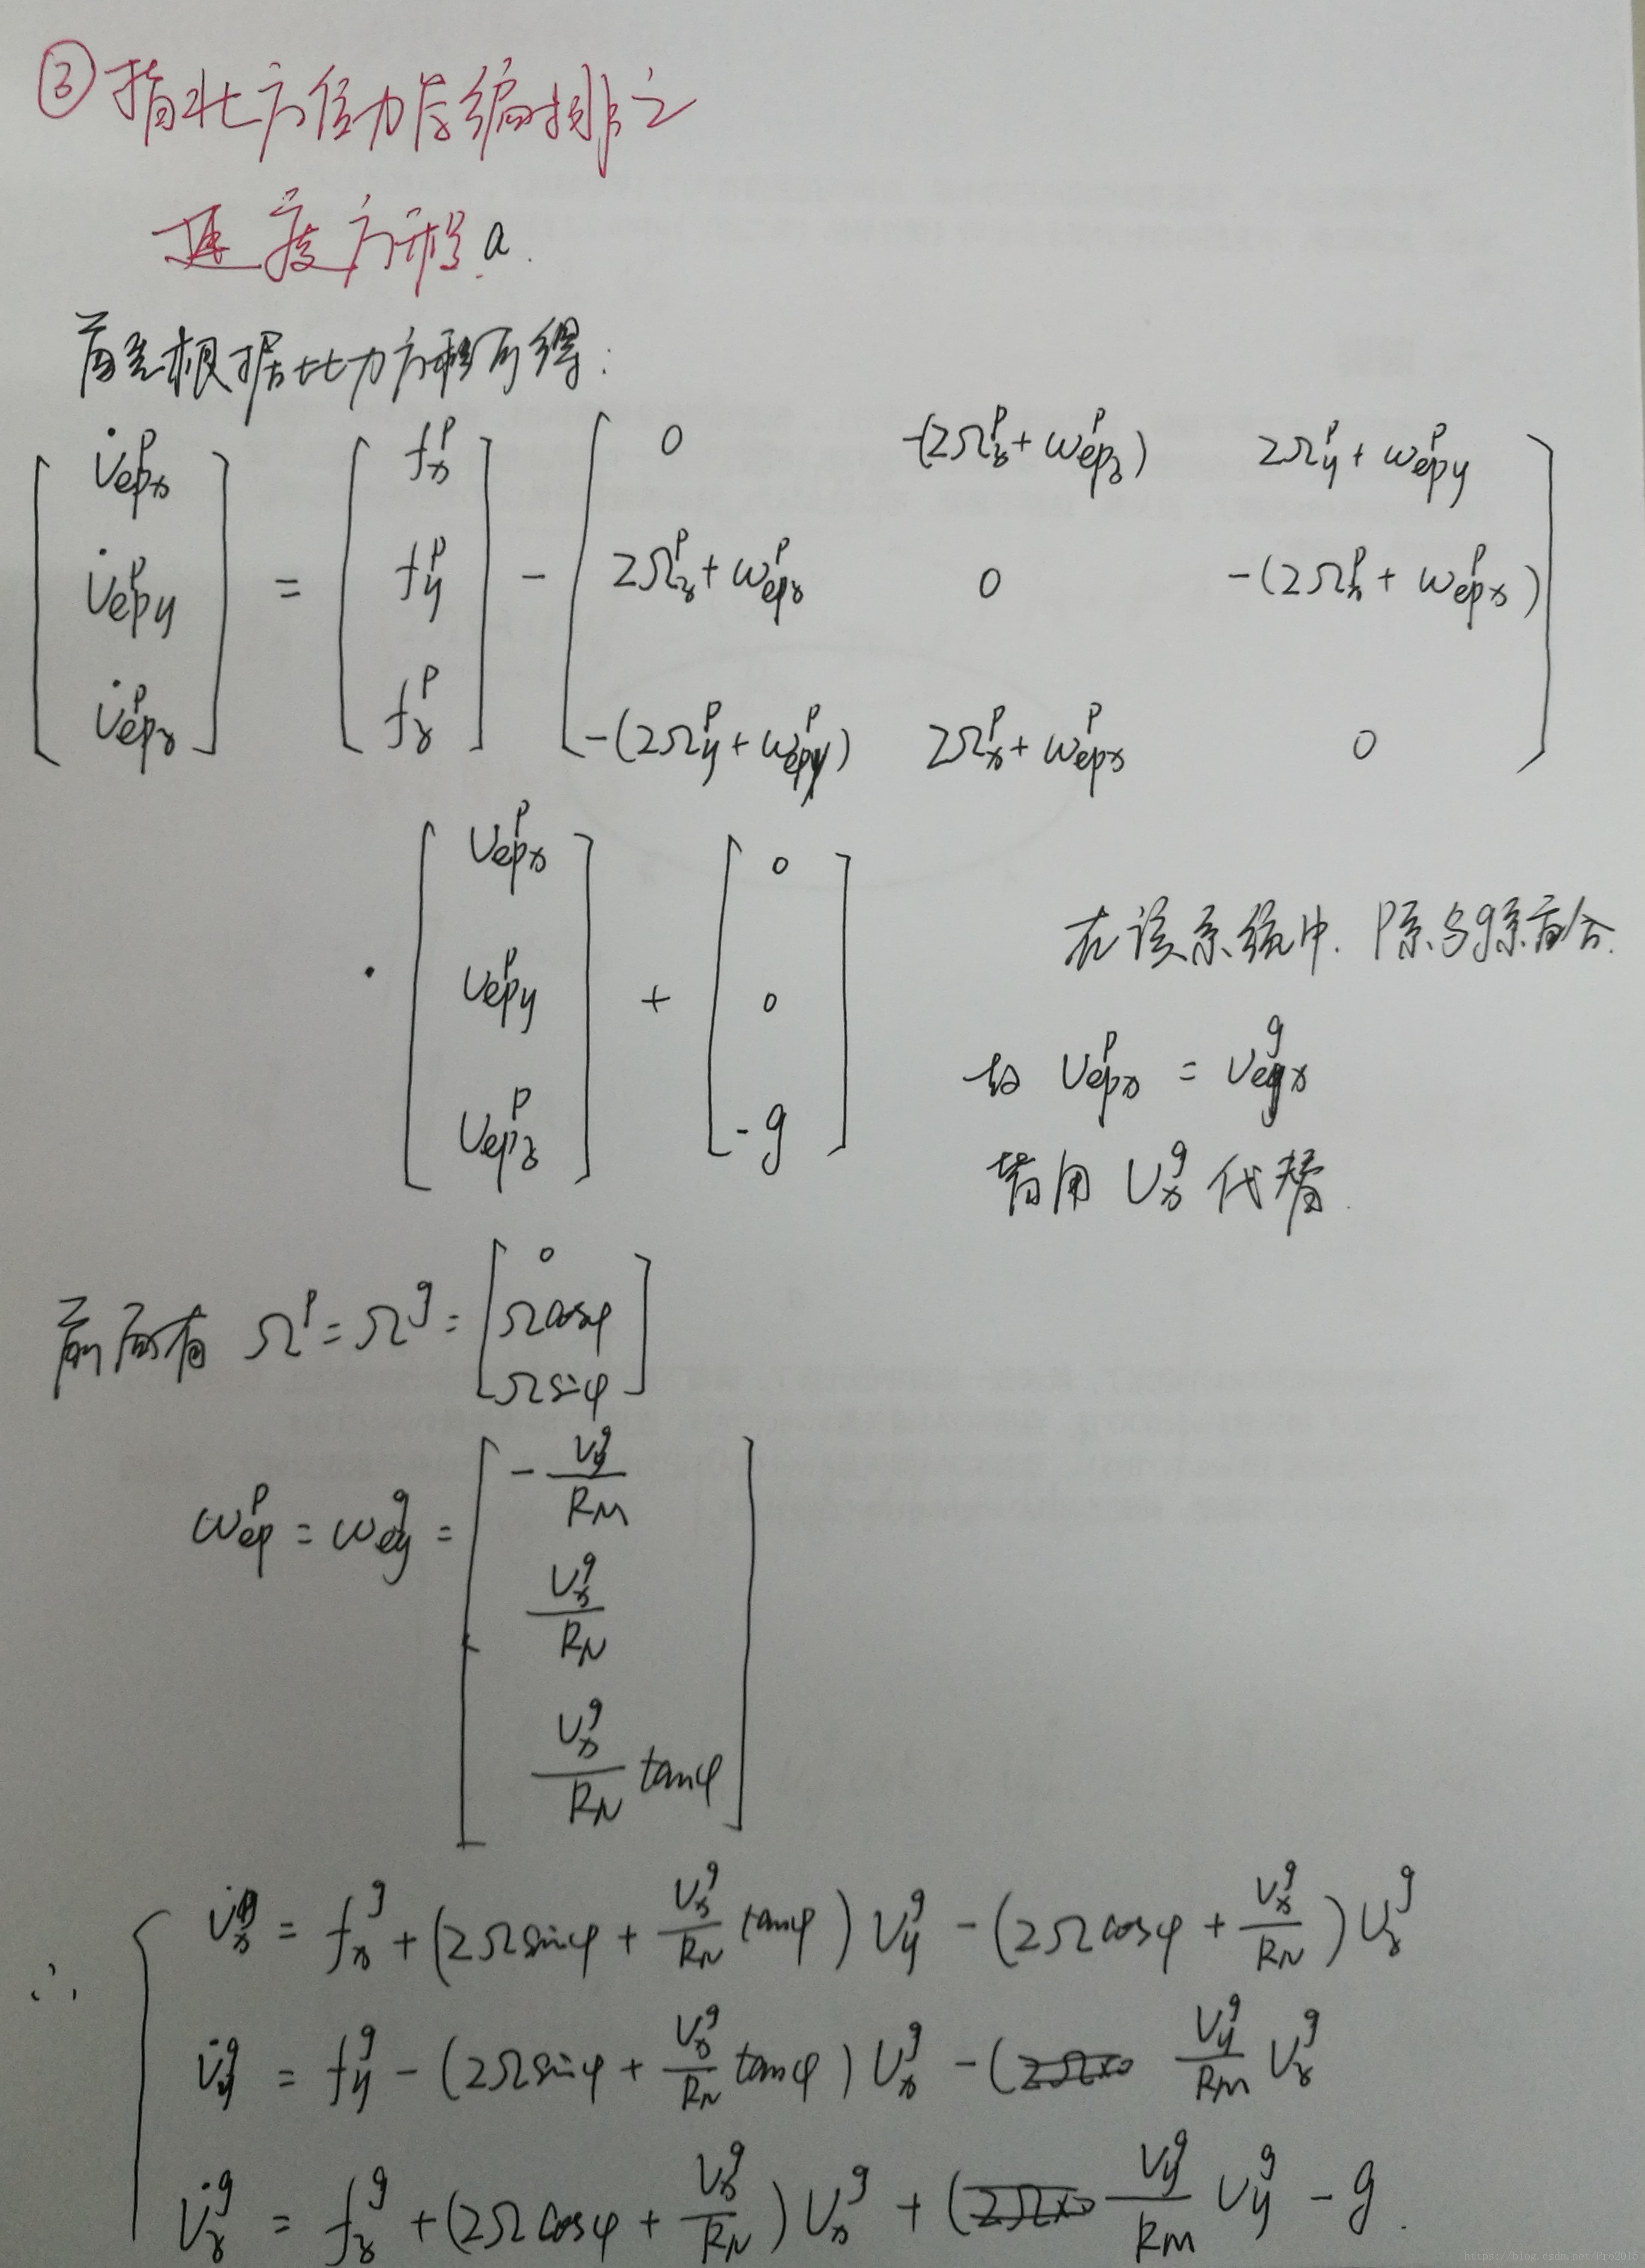 ③指北方位力学编排之
速度方程 a.
首先根据比力方程可得:
[ v̇^p_epx ; v̇^p_epy ; v̇^p_epz ] = [ f^p_x ; f^p_y ; f^p_z ] - [ 0  -(2Ω^p_z + ω^p_epz)  2Ω^p_y + ω^p_epy ; 2Ω^p_z + ω^p_epz  0  -(2Ω^p_x + ω^p_epx) ; -(2Ω^p_y + ω^p_epy)  2Ω^p_x + ω^p_epx  0 ]
· [ v^p_epx ; v^p_epy ; v^p_epz ] + [ 0 ; 0 ; -g ]
在该系统中. p系与g系重合.
故 v^p_epx = v^g_egx
皆用 v^g_x 代替.
前面有 Ω^p = Ω^g = [ 0 ; Ωcosφ ; Ωsinφ ]
ω^p_ep = ω^g_eg = [ - v^g_y / R_M ; v^g_x / R_N ; v^g_x / R_N tanφ ]
∴ { v̇^g_x = f^g_x + (2Ωsinφ + v^g_x / R_N tanφ) v^g_y - (2Ωcosφ + v^g_x / R_N) v^g_z
v̇^g_y = f^g_y - (2Ωsinφ + v^g_x / R_N tanφ) v^g_x - ( v^g_y / R_M v^g_z
v̇^g_z = f^g_z + (2Ωcosφ + v^g_x / R_N) v^g_x + ( v^g_y / R_M v^g_y - g.
https://blog.csdn.net/Pro2015